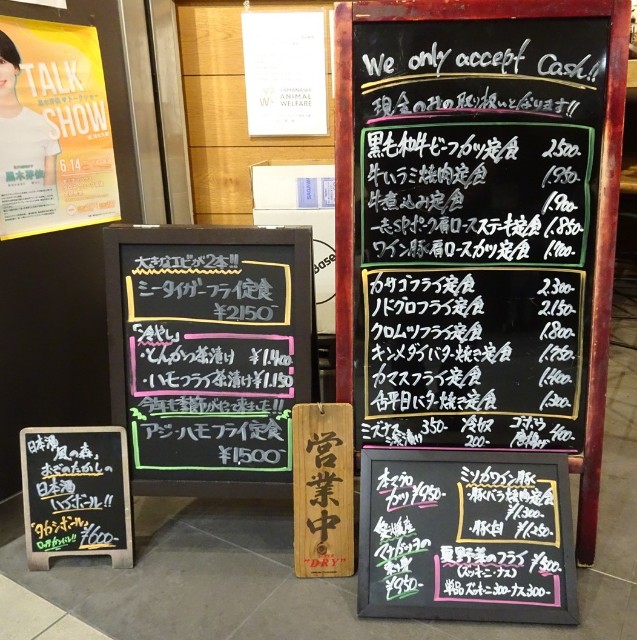 TALK
SHOW
6.14
ANIMAL
WELFARE
Base
We only accept Cash!!
現金のみの取り扱いとなります!!
黒毛和牛ビーフカツ定食 2,500-
牛ハラミ焼肉定食 1,950-
牛煮込み定食 1,900-
ポーク肩ロースステーキ定食 1,850-
ワイン豚肩ロースカツ定食 1,700-
カサゴフライ定食 2,300-
ノドグロフライ定食 2,150-
クロムツフライ定食 1,800-
キンメダイバター焼き定食 1,750-
カマスフライ定食 1,400-
舌平目バター焼き定食 1,300-
ミズナス 350-
浅漬け
冷やし
200-
ゴボウ
唐揚げ 400-
大きなエビが2本!!
シータイガーフライ定食
¥2150-
「冷やし」
・とんかつ茶漬け ¥1,400
・ハモフライ茶漬け ¥1,150
今年も季節がやって来ました!!
アジ・ハモフライ定食
¥1500-
日本酒
風の森
おぎのたかしの
日本酒
ハイボール!!
"タカシボール"
¥600-
営業中
"DRY"
本マグロ
カツ ¥950-
愛媛産
¥950-
ミソカワイン豚
・豚バラ焼肉定食
¥1,300-
¥1,250-
夏野菜のフライ ¥500-
(ズッキーニ・ナス)
単品 ズッキーニ 300- ナス 300-